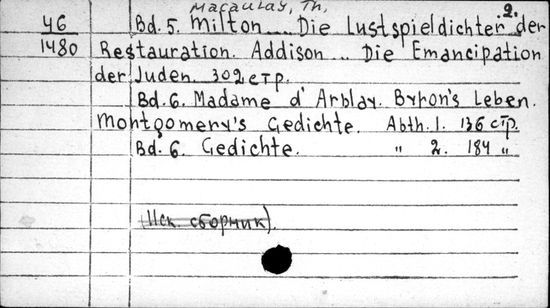 Macaulay, Th. 2.
46 Bd. 5. Milton .... Die Lustspieldichter der
1480 Restauration. Addison .. Die Emancipation
der Juden. 302 стр.
Bd. 6. Madame d'Arblay. Byron's Leben.
Montgomery's Gedichte. Abth. 1. 136 стр.
Bd. 6. Gedichte. " 2. 184 "
(Иск. сборник).